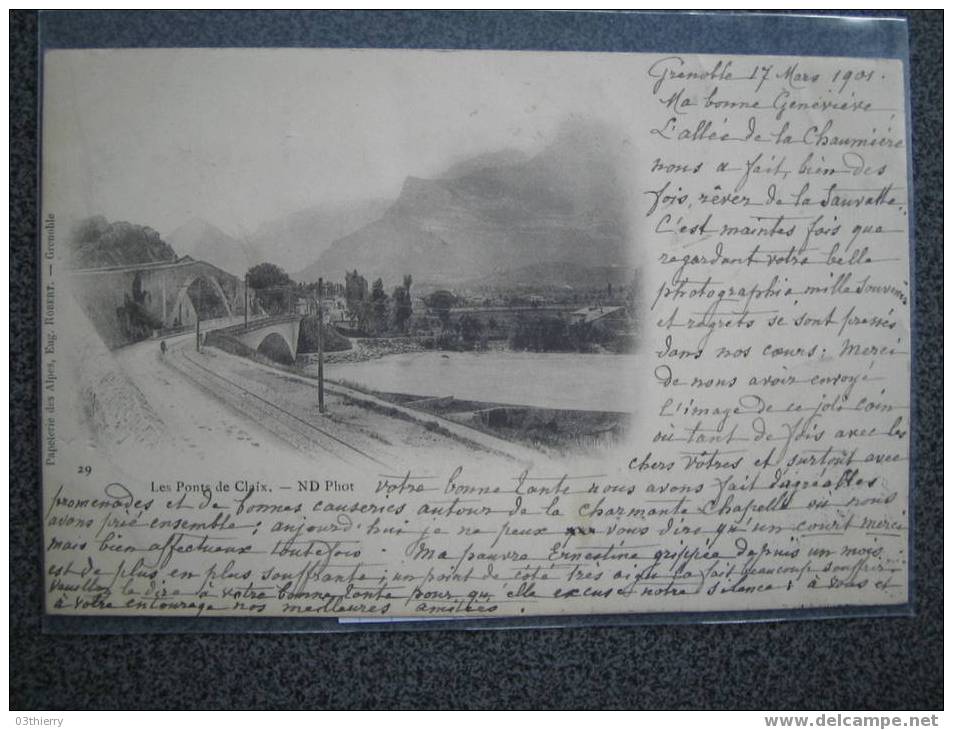 Grenoble 17 Mars 1901.
Ma bonne Geneviève,
L'allée de la Chaumière
nous a fait, bien des
fois, rêver de la Sauvatte.
C'est maintes fois que
regardant votre belle
photographie, mille souvenirs
et regrets se sont pressés
dans nos cœurs : Merci
de nous avoir envoyé
l'image de ce joli coin
où tant de fois avec les
chers vôtres et surtout avec
votre bonne tante nous avons fait d'agréables
promenades et de bonnes causeries autour de la charmante Chapelle où nous
avons prié ensemble ; aujourd'hui je ne peux vous dire qu'un court merci
mais bien affectueux toutefois. Ma pauvre Ernestine grippée depuis un mois,
est de plus en plus souffrante ; un point de côté très aigu la fait beaucoup souffrir
Veuillez le dire à votre bonne tante pour qu'elle excuse notre silence : à vous et
à votre entourage nos meilleures amitiés.
Papeterie des Alpes, Eug. ROBERT. — Grenoble
29
Les Ponts de Claix. — ND Phot
03thierry
www.delcampe.net